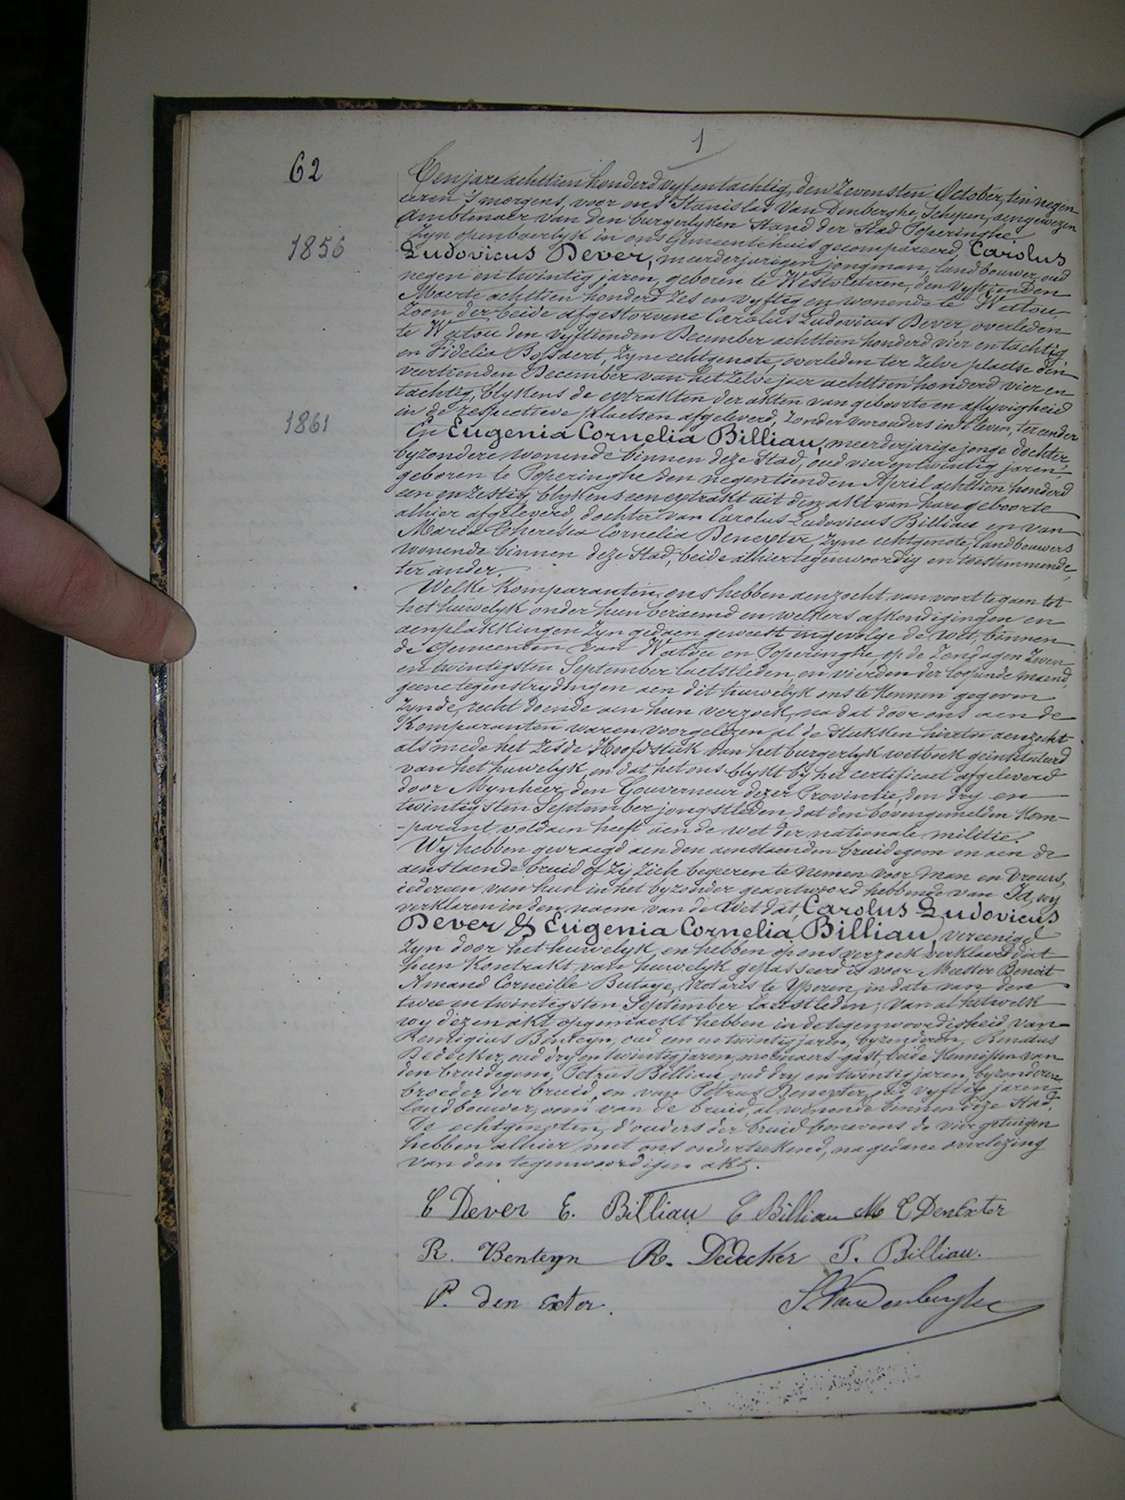 1
62
Ten jare achttien honderd vyf en tachtig, den zevensten October, ten negen
uren 's morgens, voor ons Stanislas Van Denberghe, Schepen, aengewezen
Ambtenaer van den burgerlyken Stand der Stad Poperinghe,
Zyn openbaerlyk in ons Gemeentehuis gecompareerd, Carolus
1856
Ludovicus Dever, meerderjarigen jongman, landbouwer, oud
negen en twintig jaren, geboren te Westvleteren, den vyftienden
Maerte achttien honderd zes en vyftig en wonende te Watou,
Zoon der beide afgestorvene Carolus Ludovicus Dever, overleden
te Watou den vyftienden December achttien honderd vier en tachtig,
en Fidelia Bossaert, zyne echtgenote, overleden ter zelve plaetse den
veertienden December van het zelve jaer achttien honderd vier en
tachtig, blykens de extrakten der akten van geboorte en aflyvigheid
in de respective plaetsen afgeleverd, zonder voorouders in 't leven, ter eender
1861
En Eugenia Cornelia Billiau, meerderjarige jonge dochter,
byzondere, wonende binnen deze Stad, oud vier en twintig jaren,
geboren te Poperinghe den negentienden April achttien honderd
een en zestig, blykens een extrakt uit den akt van hare geboorte
alhier afgeleverd, dochter van Carolus Ludovicus Billiau en van
Maria Theresia Cornelia Denexter, zyne echtgenote, landbouwers
wonende binnen deze Stad, beide alhier tegenwoordig en toestemmende,
ter ander.
Welke Komparanten ons hebben aenzocht van voort te gaen tot
het huwelyk onder hun beraemd en welkers afkondigingen en
aenplakkingen zyn gedaen geweest ingevolge de wet, binnen
de Gemeenten van Watou en Poperinghe op de Zondagen Zeven
en twintigsten September laetstleden, en vierden der loopende maend,
geene tegenstrydingen aen dit huwelyk ons te kennen gegeven
Zynde, recht doende aen hun verzoek, na dat door ons aen de
Komparanten waren voorgelezen al de stukken hierin aengehaelt
als mede het zesde Hoofdstuk van het burgerlyk wetboek geintituleerd
van het huwelyk, en dat het ons blykt by het certificaet afgeleverd
door Mynheer den Gouverneur dezer Provincie, den dry en
twintigsten September jongstleden, dat den bovengemelden Kom-
-parant voldaen heeft aen de wet der nationale militie.
Wy hebben gevraegd aen den aenstaenden bruidegom en aen de
aenstaende bruid of zy zich begeeren te nemen voor Man en Vrouw,
iedereen van hun in het byzonder geantwoord hebbende van Ja, wy
verklaren in den naem van de Wet dat Carolus Ludovicus
Dever & Eugenia Cornelia Billiau, vereenigd
Zyn door het huwelyk, en hebben op ons verzoek verklaerd dat
hun Kontrakt van huwelyk gepasseerd is voor Meester Benoit
Amand Corneille Butaye, Notaris te Yperen, in date van den
twee en twintigsten September laetstleden; Van al hetwelk
wy dezen akt opgemaekt hebben in de tegenwoordigheid van
Remigius Benteyn, oud een en twintig jaren, byzonderen, Renatus
Dedecker, oud dry en twintig jaren, molenaers gast, beide Kennissen van
den bruidegom, Petrus Billiau, oud dry en twintig jaren, byzonderen
broeder der bruid, en van Petrus Denexter, oud vyftig jaren,
landbouwer, oom van de bruid, al wonende binnen deze Stad.
De echtgenoten, d'ouders der bruid benevens de vier getuigen
hebben alhier met ons onderteekend, na gedane overlezing
van den tegenwoordigen akt.
C Dever E. Billiau C Billiau M C DenExter
R. Benteyn R. Dedecker P. Billiau.
P. den Exter. S. VanDenberghe